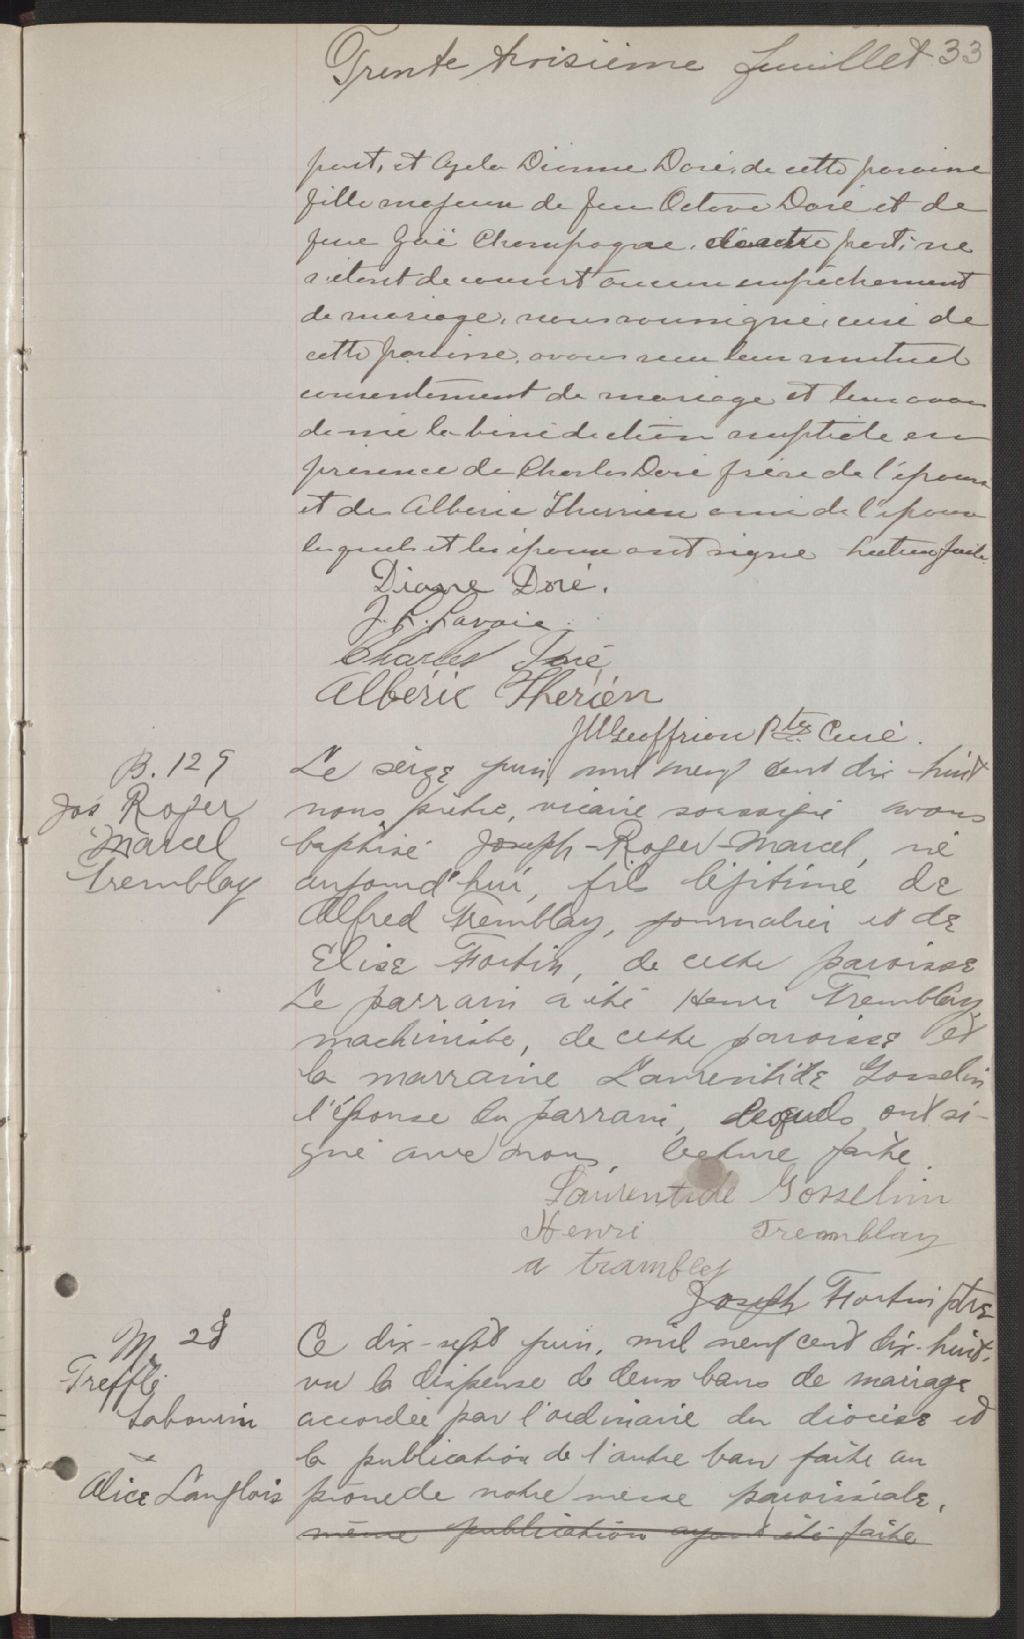 Trente troisième feuillet 33
part, et Azela Dianne Doré, de cette paroisse
fille majeure de feu Octave Doré et de
feue Zoë Champagne, d'autre part; ne
s'étant decouvert aucun empêchement
de mariage, nous soussigné, curé de
cette paroisse, avons reçu leur mutuel
consentement de mariage et leur avons
donné la bénédiction nuptiale en
présence de Charles Doré frère de l'épouse
et de Alberic Therrien ami de l'époux
lesquels et les époux ont signé lecture faite.
Diane Doré.
J. L. Lavoie
Charles Doré
Albéric Therién
Geoffrion Ptre Curé.
B. 129
Jos Roger
Marcel
Tremblay
Le seize juin, mil neuf cent dix-huit
nous prêtre, vicaire soussigné avons
baptisé Joseph-Roger-Marcel, né
aujourd'hui, fils légitime de
Alfred Tremblay, journalier et de
Elise Fortin, de cette paroisse
Le parrain a été Henri Tremblay,
machiniste, de cette paroisse et
la marraine Laurentide Gosselin
l'épouse du parrain, lesquels ont si-
gné avec nous, lecture faite.
Laurentide Gosselinn
Henri Tremblay
a trambley
Joseph Fortin ptre
M. 28
Trefflé
Sabourin
&
Alice Langlois
Ce dix-sept juin, mil neuf cent dix-huit,
vu la dispense de deux bans de mariage
accordée par l'ordinaire du diocèse et
la publication de l'autre ban faite au
prone de notre messe paroissiale,
même publication ayant été faite